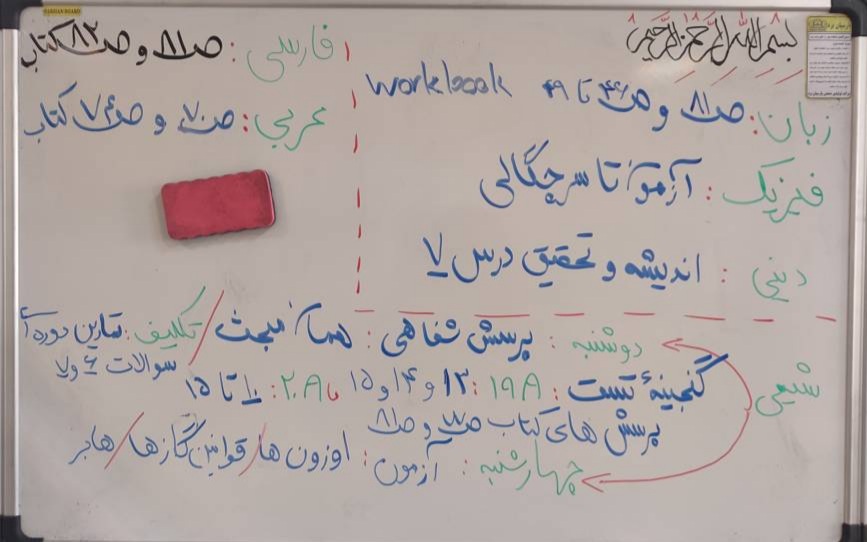 بسم الله الرحمن الرحیم
زبان: ص ۸۱ و ص ۴۶ تا ۴۹ workbook
فیزیک: آزمون تا سر چگالی
دینی: اندیشه و تحقیق درس ۷
فارسی: ص ۸۱ و ص ۸۲ کتاب
عربی: ص ۷۰ و ص ۷۶ کتاب
شیمی
دوشنبه: پرسش شفاهی: همان مبحث / تکلیف: تمارین دوره‌ای
سوالات ۶ و ۷
گنجینهٔ تست: ۱۹۸: ۱۳ و ۱۴ و ۱۵ تا ۲۰۸: ۱۰ تا ۱۵
پرسش های کتاب ص ۷۷ و ص ۸۱
چهارشنبه: آزمون: اوزون ها / قوانین گازها / هابر
PARSIAN BOARD